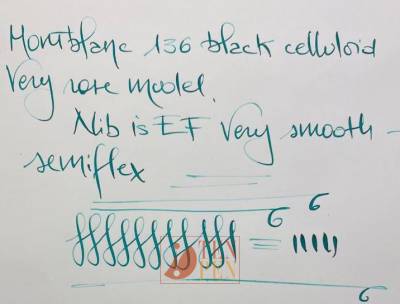 Montblanc 136 black celluloid
Very rare model.
Nib is EF Very smooth -
semiflex
6 6
TEN
PEN
6